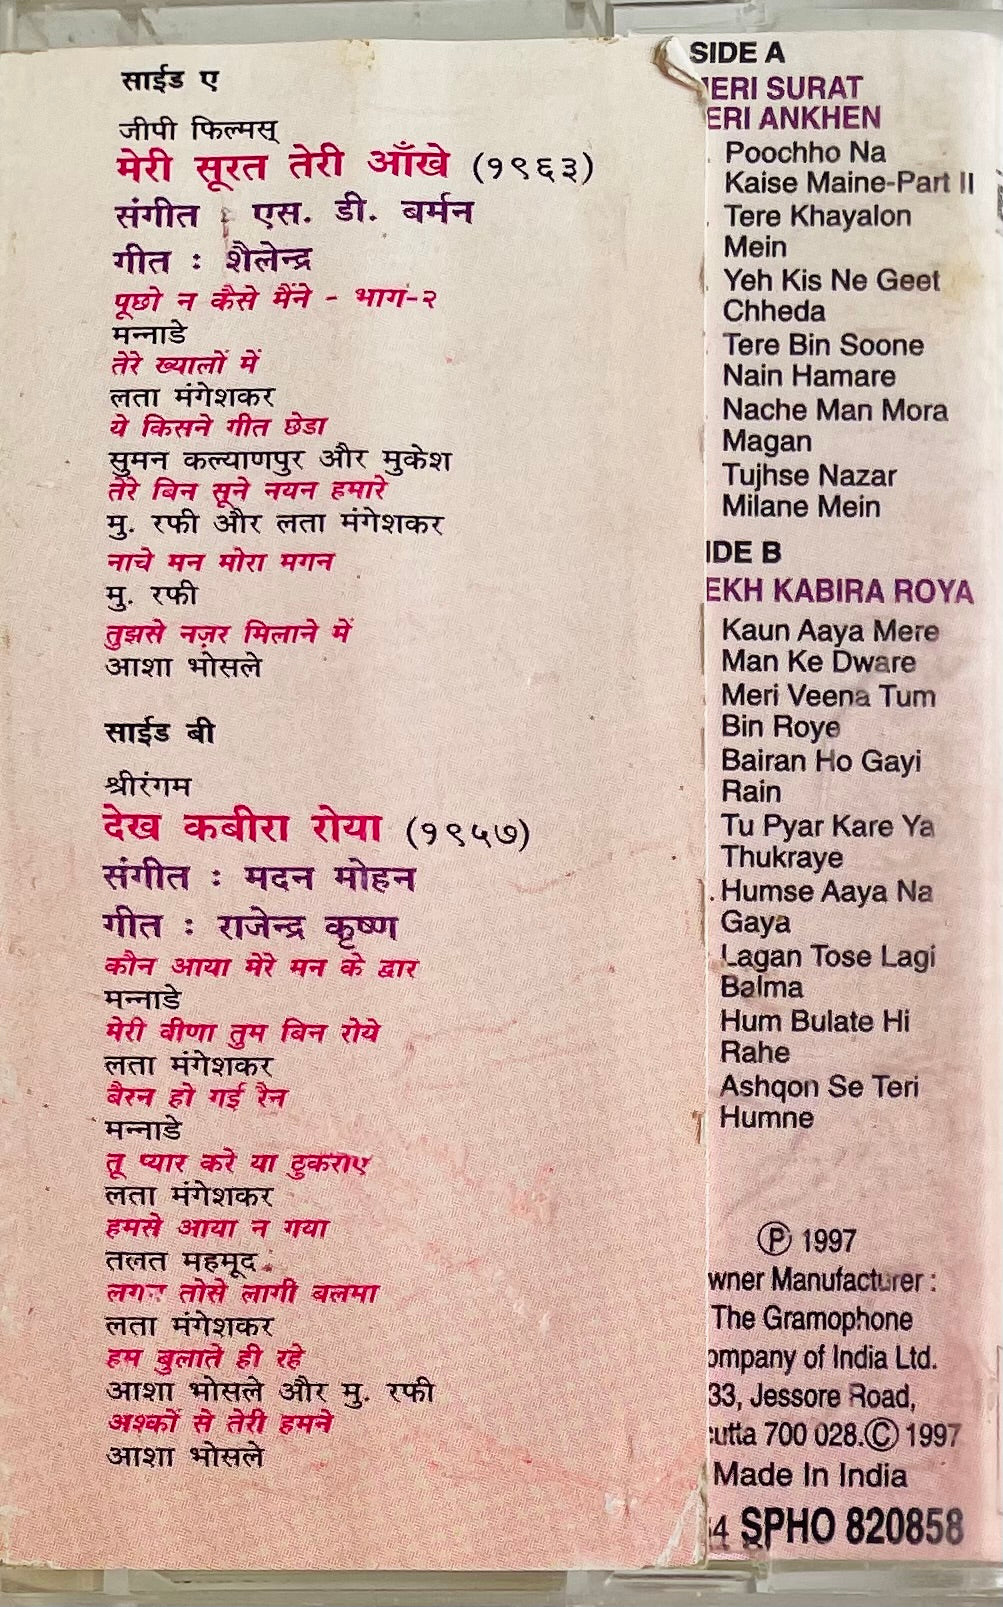 साईड ए
जीपी फिल्मस्
मेरी सूरत तेरी आँखे (१९६३)
संगीत : एस. डी. बर्मन
गीत : शैलेन्द्र
पूछो न कैसे मैंने - भाग-२
मन्नाडे
तेरे ख्यालों में
लता मंगेशकर
ये किसने गीत छेडा
सुमन कल्याणपुर और मुकेश
तेरे बिन सूने नयन हमारे
मु. रफी और लता मंगेशकर
नाचे मन मोरा मगन
मु. रफी
तुझसे नज़र मिलाने में
आशा भोसले
साईड बी
श्रीरंगम
देख कबीरा रोया (१९५७)
संगीत : मदन मोहन
गीत : राजेन्द्र कृष्ण
कौन आया मेरे मन के द्वार
मन्नाडे
मेरी वीणा तुम बिन रोये
लता मंगेशकर
बैरन हो गई रैन
मन्नाडे
तू प्यार करे या ठुकराए
लता मंगेशकर
हमसे आया न गया
तलत महमूद
लगन तोसे लागी बलमा
लता मंगेशकर
हम बुलाते ही रहे
आशा भोसले और मु. रफी
अश्कों से तेरी हमने
आशा भोसले
SIDE A
ERI SURAT
ERI ANKHEN
Poochho Na
Kaise Maine-Part II
Tere Khayalon
Mein
Yeh Kis Ne Geet
Chheda
Tere Bin Soone
Nain Hamare
Nache Man Mora
Magan
Tujhse Nazar
Milane Mein
IDE B
EKH KABIRA ROYA
Kaun Aaya Mere
Man Ke Dware
Meri Veena Tum
Bin Roye
Bairan Ho Gayi
Rain
Tu Pyar Kare Ya
Thukraye
Humse Aaya Na
Gaya
Lagan Tose Lagi
Balma
Hum Bulate Hi
Rahe
Ashqon Se Teri
Humne
Ⓟ 1997
wner Manufacturer :
The Gramophone
ompany of India Ltd.
33, Jessore Road,
utta 700 028.© 1997
Made In India
4 SPHO 820858